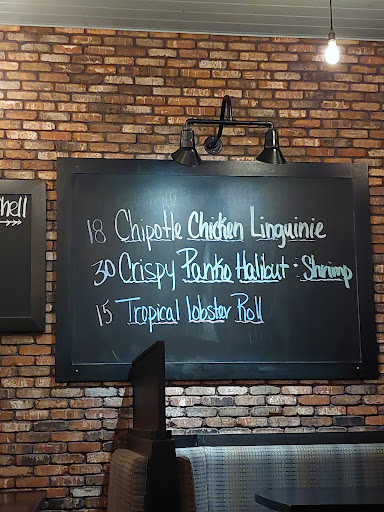 hell
18 Chipotle Chicken Linguinie
30 Crispy Panko Halibut - Shrimp
15 Tropical lobster Roll